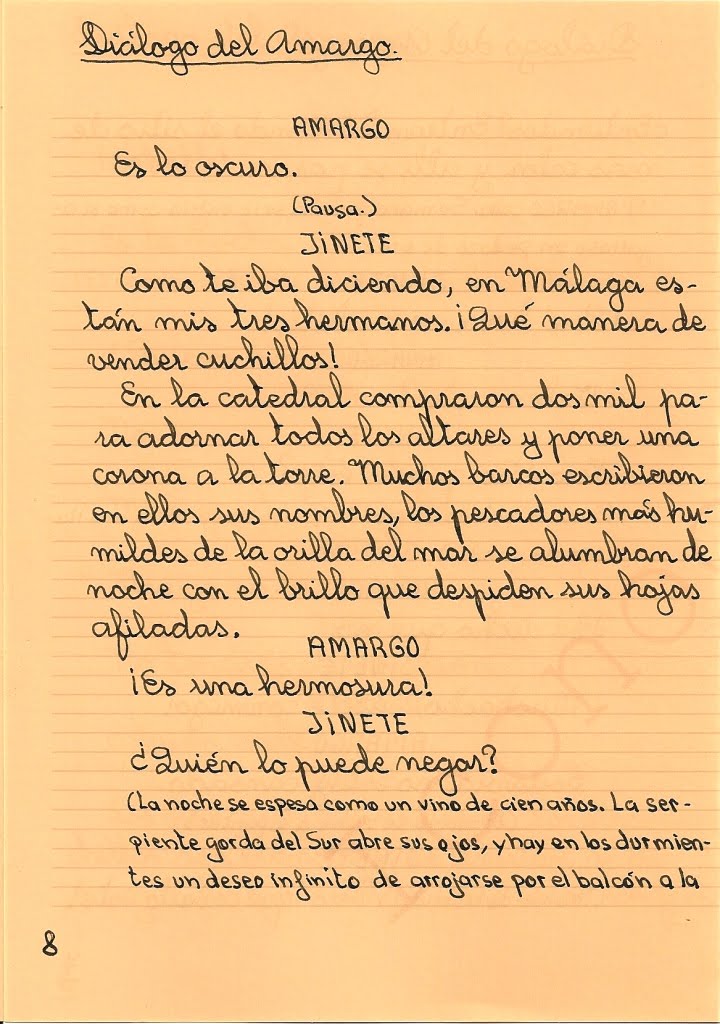 Diálogo del Amargo.
AMARGO
Es lo oscuro.
(Pausa.)
JINETE
Como te iba diciendo, en Málaga es-
tán mis tres hermanos. ¡Qué manera de
vender cuchillos!
En la catedral compraron dos mil pa-
ra adornar todos los altares y poner una
corona a la torre. Muchos barcos escribieron
en ellos sus nombres, los pescadores más hu-
mildes de la orilla del mar se alumbran de
noche con el brillo que despiden sus hojas
afiladas.
AMARGO
¡Es una hermosura!
JINETE
¿Quién lo puede negar?
(La noche se espesa como un vino de cien años. La ser-
piente gorda del Sur abre sus ojos, y hay en los durmien-
tes un deseo infinito de arrojarse por el balcón a la
8